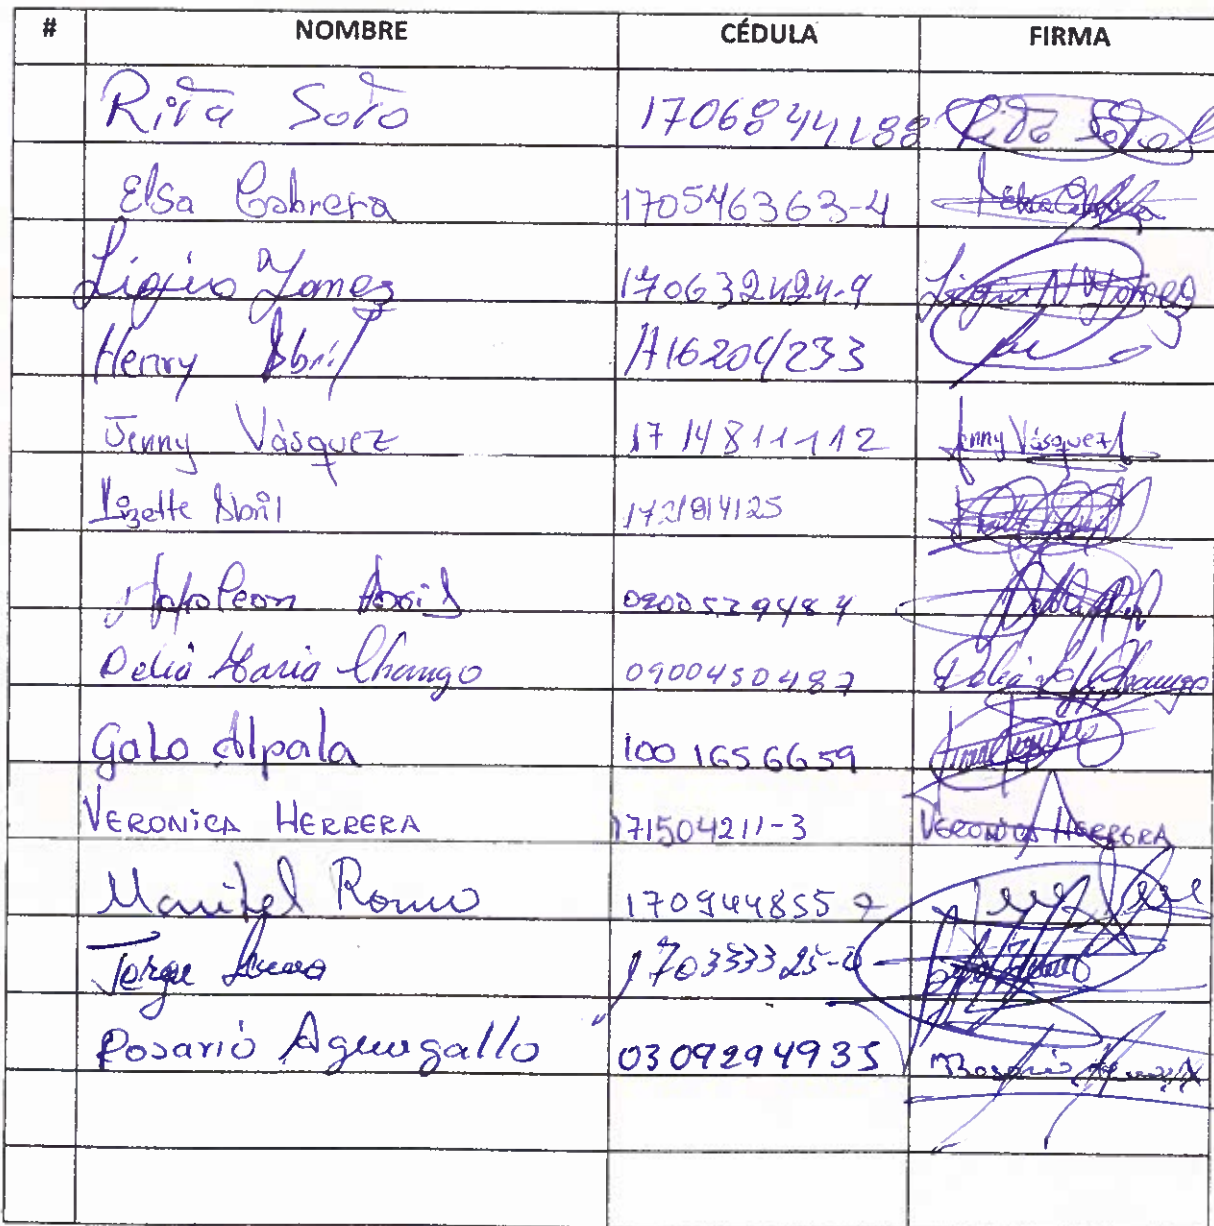 # NOMBRE CÉDULA FIRMA
Rita Soto 1706844188 Rita Soto
Elsa Cabrera 170546363-4 Elsa
Ligia Yamez 170632424-9 Ligia N Yamez
Henry Abril A16204233
Jenny Vásquez 1714811112 Jenny Vásquez
Lizette Abril 1721814125
Napoleon Abril 0200539484
Delia Maria Chango 0900450487 Delia Chango
Galo Alpala 1001656659
VERONICA HERRERA 171504211-3 VERONICA HERRERA
Maribel Romo 170944855
Jorge 170333325-
Rosario 0309294935 Rosario